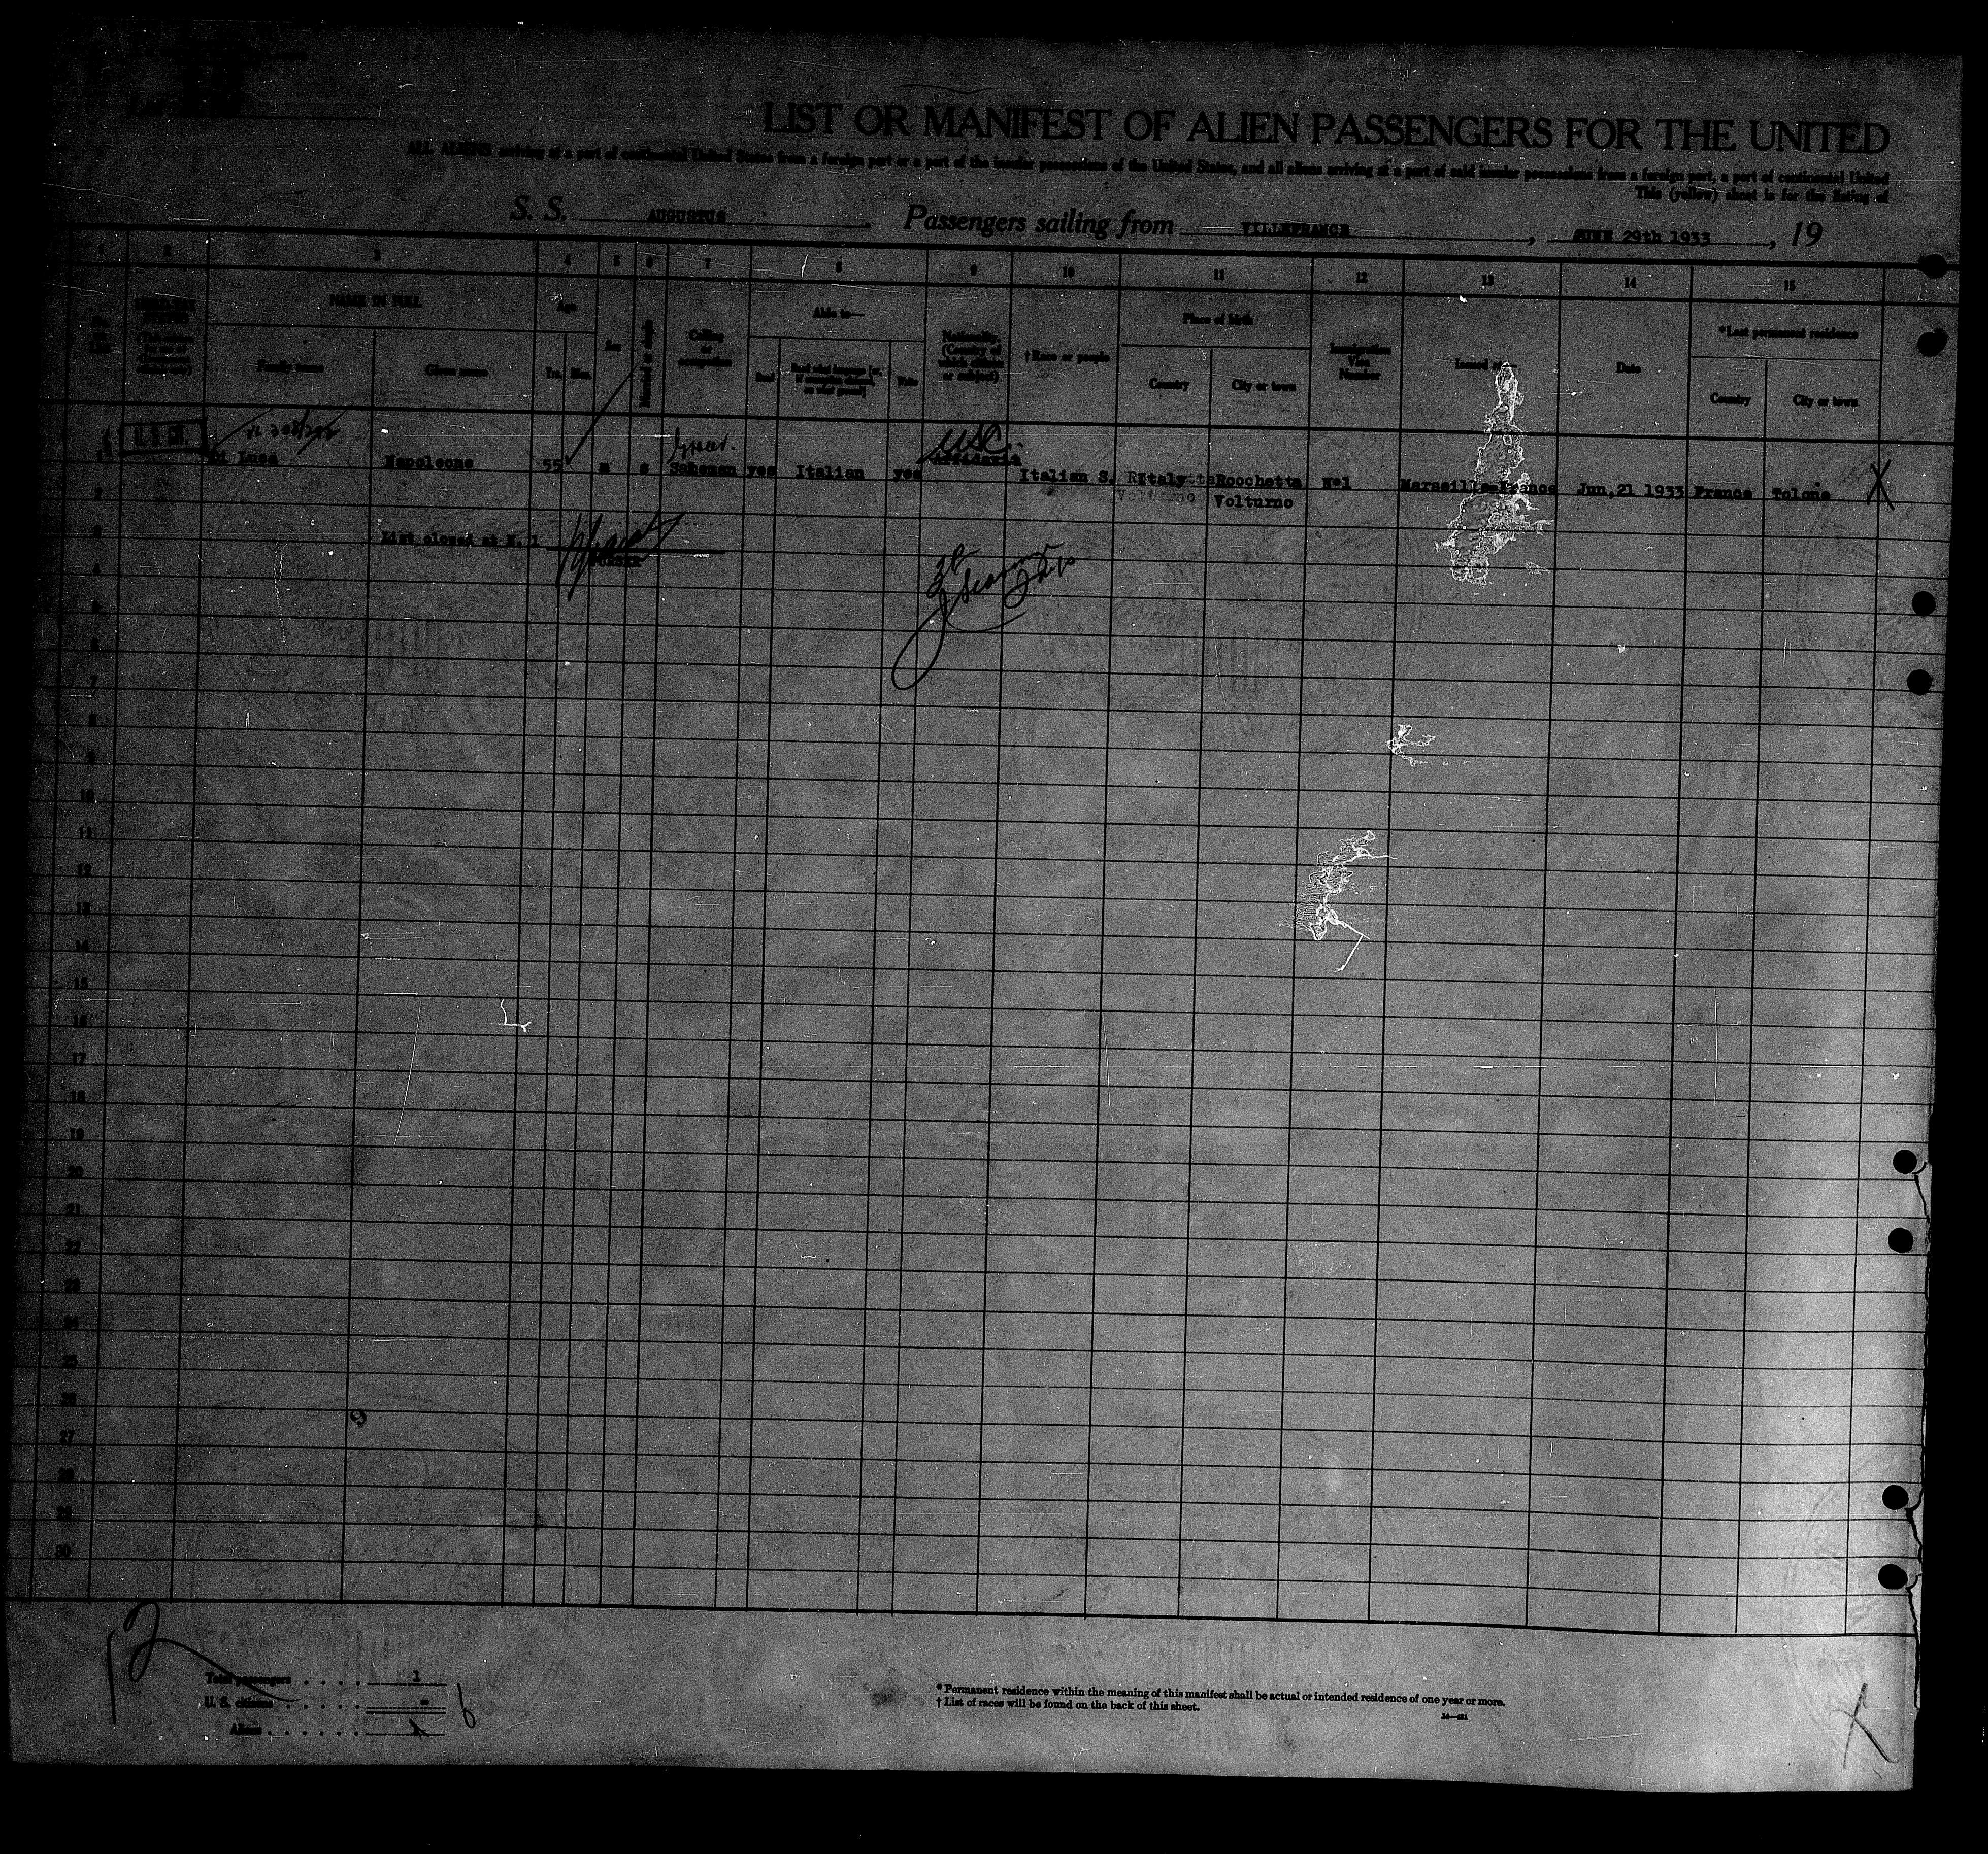 LIST OR MANIFEST OF ALIEN PASSENGERS FOR THE UNITED
ALL ALIENS arriving at a port of continental United States from a foreign port or a port of the insular possessions of the United States, and all aliens arriving at a port of said insular possessions from a foreign port, a port of continental United
This (yellow) sheet is for the listing of
S. S. AUGUSTUS Passengers sailing from VILLEFRANCE, JUNE 29th 1933, 19
1 2 3 4 5 6 7 8 9 10 11 12 13 14 15
NAME IN FULL
Family name
Given name
Age
Yrs. Mos.
Sex
Married or single
Calling or occupation
Able to—
Read
Read what language [or, if exemption claimed, on what ground]
Write
Nationality. (Country of which citizen or subject)
† Race or people
Place of birth
Country
City or town
Immigration Visa Number
Issued at—
Date
*Last permanent residence
Country
City or town
USC.
1 Di Luca Napoleone 55 m s yes Italian yes Italian S. Italy Rocchetta N°1 Marseille France Jun, 21 1933 France Tolone X
Volturno Volturno
2
3 List closed at N. 1
PURSER
4
5
6
7
8
9
10
11
12
13
14
15
16
17
18
19
20
21
22
23
24
25
26
9
27
28
29
30
12
Total passengers . . . . 1
U. S. citizens . . . . . -
Aliens . . . . . . 1
6
* Permanent residence within the meaning of this manifest shall be actual or intended residence of one year or more.
† List of races will be found on the back of this sheet.
X